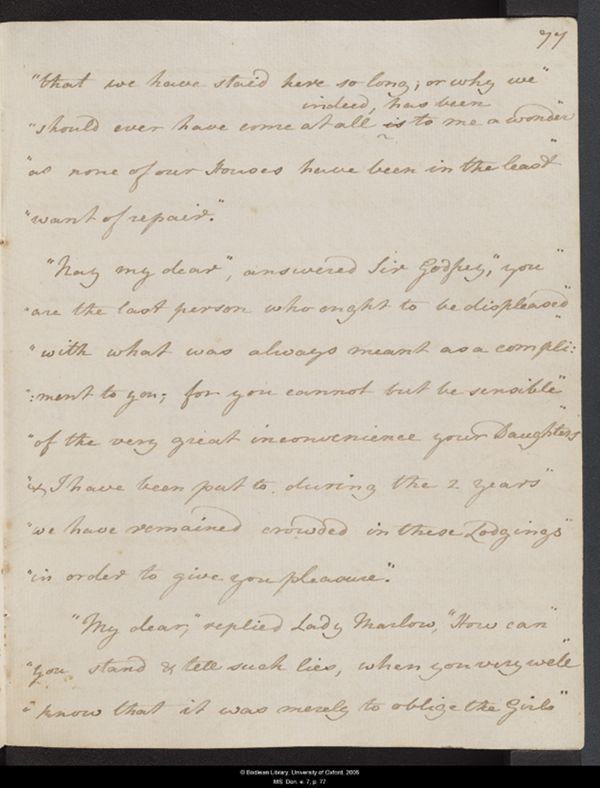 77
"that we have staid here so long; or why we"
indeed, has been
"should ever have come at all is to me a wonder"
"as none of our Houses have been in the least"
"want of repair."
"Nay my dear", answered Sir Godfrey, "you"
"are the last person who ought to be displeased"
"with what was always meant as a compli:"
":ment to you; for you cannot but be sensible"
"of the very great inconvenience your Daughters"
"& I have been put to, during the 2 years"
"we have remained crowded in these Lodgings"
"in order to give you pleasure."
"My dear," replied Lady Marlow, "How can"
"you stand & tell such lies, when you very well"
"know that it was merely to oblige the Girls"
© Bodleian Library, University of Oxford, 2005
MS. Don. e. 7, p. 77